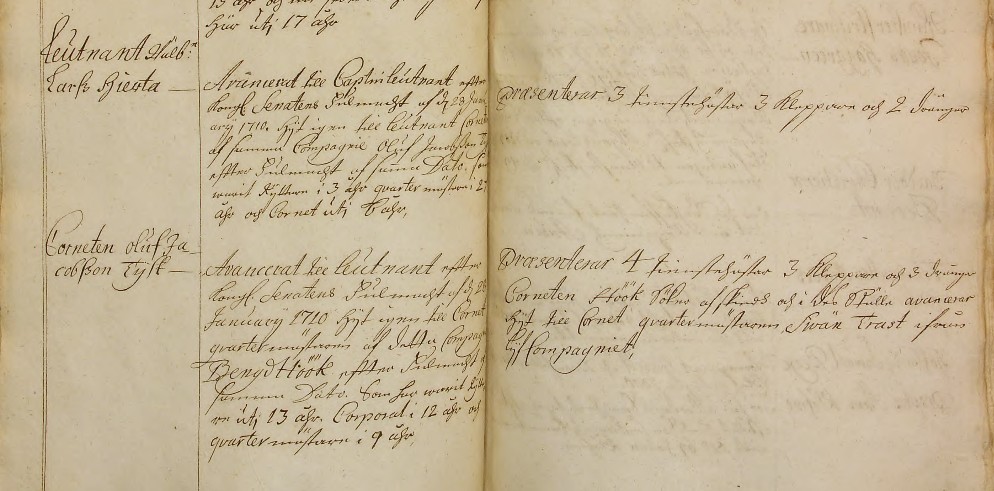 Här utj 17 åhr
Leutnant Wälb:n
Larß Hierta —
Avancerat till Captinleutnant effter
Kongl. Senatens Fulmacht af d. 28 Janu
ary 1710. Hijt igen till leutnant Cornet
af samma Compagnie Oluf Jacobsson
effter Fulmacht af sama Dato. Som
warit Ryttare i 3 åhr quartermästare i
åhr och Cornet utj 6 åhr,
Præsenterar 3 tienstehästar 3 Kleppare och 2 dränger
Corneten Oluf Ja-
cobsson Tysk —
Avancerat till leutnant effter
Kongl. Senatens Fulmacht af d. 28
January 1710 Hijt igen till Cornet
quartermästaren af detta Compag
Bengdt Höök effter Fulmacht af
samma Dato. Som har warit Rytta
re utj 13 åhr. Corporal i 12 åhr och
quartermästare i 9 åhr,
Præsenterar 4 tienstehästar 3 Kleppare och 3 dränger
Corneten Höök Söker afskied och i des Ställe avancerar
Hijt till Cornet quartermästaren Swän Trast ifrån
Compagniet,